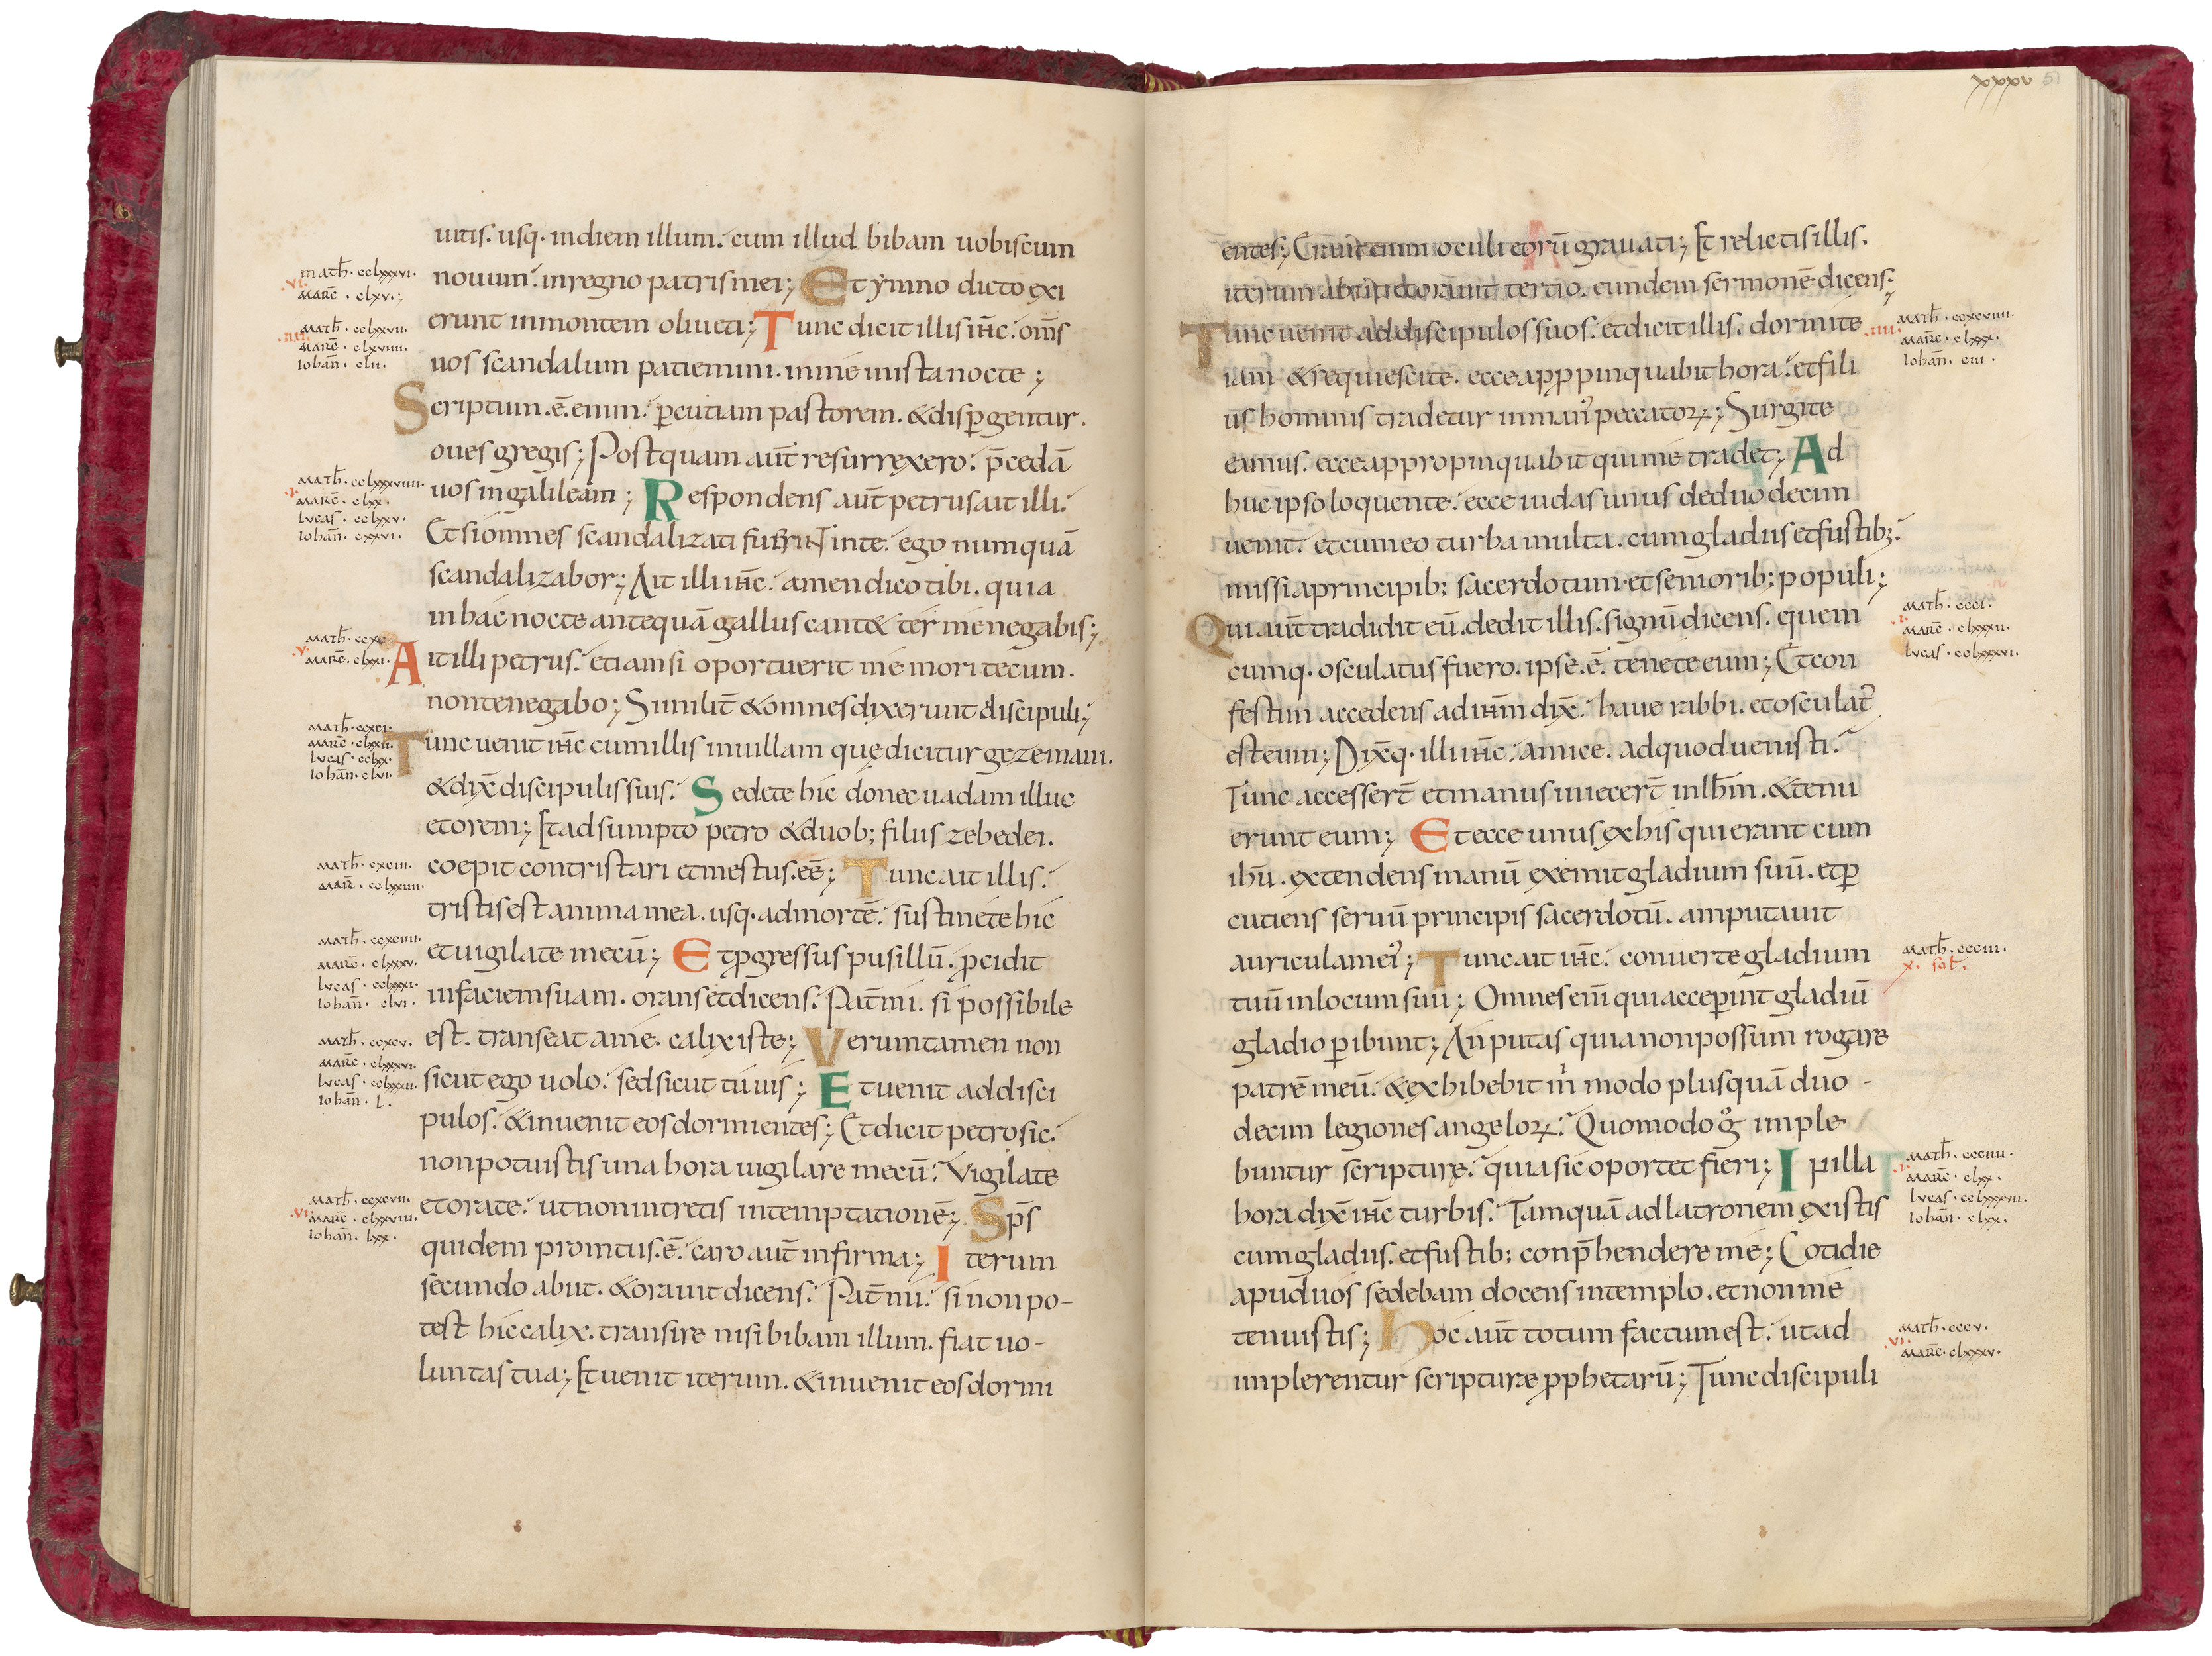 uitis. usq. indiem illum. cum illud bibam uobiscum
nouum. inregno patrismei; Et ymno dicto exi
math. cclxxxvi.
.vi. marc. clxv.
erunt inmontem oliueti; Tunc dicit illis ihc. oms
math. cclxxvii.
.iiii. marc. clxviiii.
iohan. clii.
uos scandalum patiemini. inme inistanocte;
Scriptum. ē. enim. pcutiam pastorem. & dispgentur.
oues gregis; Postquam aut resurrexero. pcedā
math. cclxxxviiii.
.i. marc. clxx.
lucas. cclxxv.
iohan. cxxvi.
uos ingalileam; Respondens aut petrus ait illi.
Et si omnes scandalizati fuerint inte. ego numquā
scandalizabor; Ait illi ihc. amen dico tibi. quia
inhac nocte antequā gallus cant& ter me negabis;
math. ccxc.
.v. marc. clxxi.
Ait illi petrus. etiamsi oportuerit me mori tecum.
nontenegabo; Similit & omnes dixerunt discipuli;
math. ccxci.
marc. clxxii.
lucas. cclxx.
iohan. clvi.
Tunc uenit ihc cumillis inuillam quę dicitur gezemani.
& dix discipulis suis. Sedete hic donec uadam illuc
etorem; Et adsumpto petro & duob; filiis zebedei.
math. cxciii.
mar. cclxxiiii.
coepit contristari etmestus. eē; Tunc ait illis.
tristis est anima mea. usq. admortē. sustinete hic
math. ccxciiii.
marc. clxxxv.
lucas. cclxxxi.
iohan. clvi.
etuigilate mecū; Et pgressus pusillū. pcidit
infaciem suam. orans etdicens. Pat mi. si possibile
math. ccxcv.
marc. clxxxvi.
lucas. cclxxxii.
iohan. l.
est. transeat ame. calix iste; Verumtamen non
sicut ego uolo. sed sicut tu uis; Et uenit ad disci
pulos. & inuenit eos dormientes; Et dicit petro sic.
non potuistis una hora uigilare mecū. Vigilate
math. ccxcvii.
.vi. marc. clxxviii.
iohan. lxx.
etorate. ut non intretis intemptationē; Sps
quidem promtus. ē. caro aut infirma; Iterum
secundo abiit. & orauit dicens. Pat mi. si non po-
test hic calix. transire nisi bibam illum. fiat uo-
luntas tua; Et uenit iterum. & inuenit eos dormi
xxxv 51
entes; Erant enim oculi eorū grauati; Et relictis illis.
iterum abiit etorauit tertio. eundem sermonē dicens;
Tunc uenit ad discipulos suos. etdicit illis. dormite
.iiii. math. ccxcviiii.
marc. clxxx.
iohan. ciii.
iam & requiescite. ecce appppinquabit hora. et fili
us hominis tradetur inman peccatorꝝ; Surgite
eamus. ecce appropinquabit qui me tradet; Ad
huc ipso loquente. ecce iudas unus deduodecim
uenit. et cum eo turba multa. cum gladiis et fustib;
missi aprincipib; sacerdotum et seniorib; populi;
.i. math. ccci.
marc. clxxxii.
lucas. cclxxxvi.
Qui aut tradidit eū. dedit illis. signū dicens. quem
cumq. osculatus fuero. ipse. ē. tenete eum; Et con
festim accedens ad ihm dix. haue rabbi. etosculat
est eum; Dixq. illi ihc. amice. adquod uenisti.
Tunc accessert et manus iniecert in ihm. & tenu
erunt eum; Et ecce unus ex his qui erant cum
ihu. extendens manū exemit gladium suū. et p
cutiens seruū principis sacerdotū. amputauit
auriculam ei; Tunc ait ihc. conuerte gladium
math. ccciii.
x. sol.
tuū inlocum suū; Omnes eni qui acceperint gladiū
gladio pibunt; An putas quia non possum rogare
patrē meū. & exhibebit m modo plusquā duo-
decim legiones angelorꝝ. Quomodo g imple
buntur scripturę. quia sic oportet fieri; In illa
.i. math. ccciiii.
marc. clxx.
lucas. cclxxxvii.
iohan. clxx.
hora dix ihc turbis. Tamquā ad latronem existis
cum gladiis. et fustib; conphendere me; Cotidie
apud uos sedebam docens intemplo. et non me
tenuistis; Hoc aut totum factum est. ut ad
.vi. math. cccv.
marc. clxxxv.
implerentur scripturae pphetarū; Tunc discipuli